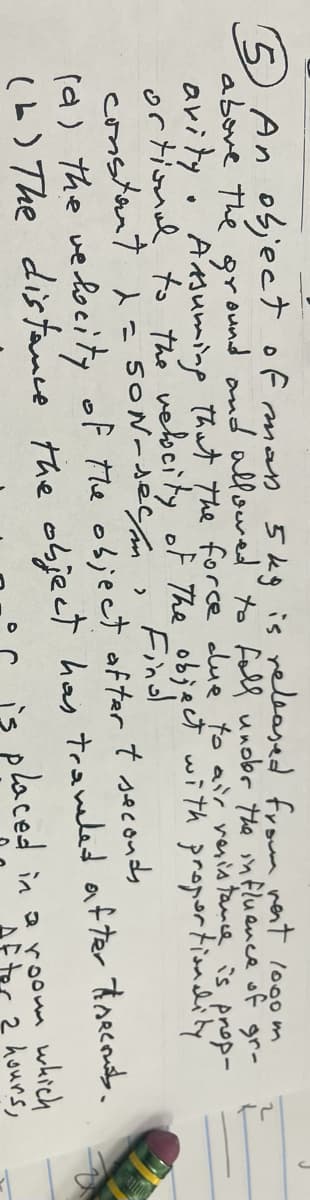 5 An object of mass 5 kg is released from rest 1000 m
above the ground and allowed to fall under the influence of gr-
avity. Assuming that the force due to air resistance is prop-
ortional to the velocity of the object with proportionality
constant λ = 50N-sec/m, Find
(a) the velocity of the object after t seconds
(b) The distance the object has traveled after t seconds.
is placed in a room which
After 2 hours,